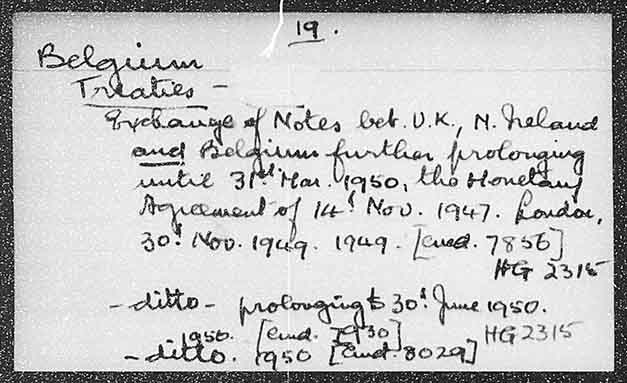 19.
Belgium
Treaties -
Exchange of Notes bet. U.K., N. Ireland
and Belgium further prolonging
until 31st Mar. 1950, the Monetary
Agreement of 14t Nov. 1947. London,
30t Nov. 1949. 1949. [Cmd. 7856]
HG 2315
- ditto - prolonging to 30t June 1950.
1950. [Cmd. 7930] HG 2315
- ditto. 1950 [Cmd. 8029]